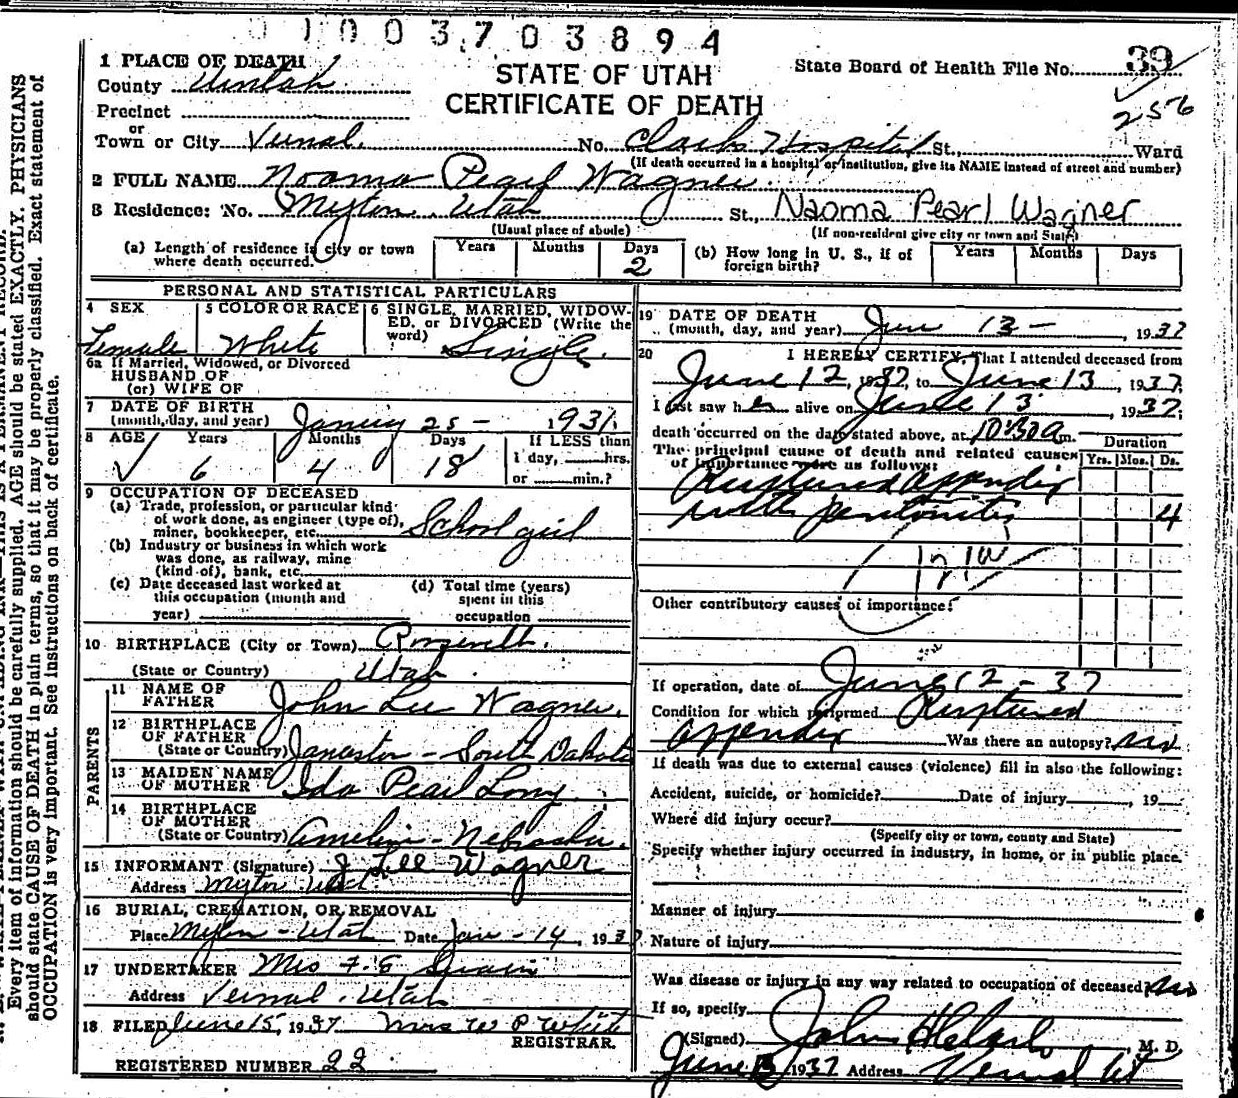 01003703894
1 PLACE OF DEATH
County Uintah
STATE OF UTAH
CERTIFICATE OF DEATH
State Board of Health File No. 39
256
Precinct
or
Town or City Vernal. No. Clark Hospital St., Ward
(If death occurred in a hospital or institution, give its NAME instead of street and number)
2 FULL NAME Naoma Pearl Wagner.
3 Residence: No. Myton, Utah St., Naoma Pearl Wagner
(Usual place of abode) (If non-resident give city or town and State)
(a) Length of residence in city or town where death occurred. Years Months Days 2
(b) How long in U. S., if of foreign birth? Years Months Days
PERSONAL AND STATISTICAL PARTICULARS
4 SEX Female
5 COLOR OR RACE White
6 SINGLE, MARRIED, WIDOWED, or DIVORCED (Write the word) Single.
6a If Married, Widowed, or Divorced
HUSBAND OF
(or) WIFE OF
7 DATE OF BIRTH
(month, day, and year) 25 - 1931
8 AGE Years 6 Months 4 Days 18 If LESS than 1 day, hrs. or min.?
9 OCCUPATION OF DECEASED
(a) Trade, profession, or particular kind
of work done, as engineer (type of),
miner, bookkeeper, etc. School girl
(b) Industry or business in which work
was done, as railway, mine
(kind of), bank, etc.
(c) Date deceased last worked at
this occupation (month and
year)
(d) Total time (years)
spent in this
occupation
10 BIRTHPLACE (City or Town) Roosevelt.
(State or Country) Utah
PARENTS
11 NAME OF
FATHER John Lee Wagner.
12 BIRTHPLACE
OF FATHER
(State or Country) - South Dakota
13 MAIDEN NAME
OF MOTHER Ida Pearl Long.
14 BIRTHPLACE
OF MOTHER
(State or Country) Amelia - Nebraska.
15 INFORMANT (Signature) J Lee Wagner
Address Myton Utah
16 BURIAL, CREMATION, OR REMOVAL
Place Myton - Utah Date - 14, 1937
17 UNDERTAKER Mrs F. E. Swain
Address Vernal, Utah
18 FILED June 15, 1937 Mrs W P White
REGISTRAR.
REGISTERED NUMBER 22
19 DATE OF DEATH
(month, day, and year) Jun 13 - 1937
20 I HEREBY CERTIFY, That I attended deceased from
June 12, 1937, to June 13, 1937.
I last saw her alive on June 13, 1937;
death occurred on the date stated above, at 10:30 a m.
The principal cause of death and related causes
of importance were as follows:
Duration
Yrs. Mos. Ds.
Ruptured appendix
with peritonitis 4
Other contributory causes of importance:
If operation, date of June 12 - 37
Condition for which performed Ruptured
appendix Was there an autopsy? no
If death was due to external causes (violence) fill in also the following:
Accident, suicide, or homicide? Date of injury , 19
Where did injury occur?
(Specify city or town, county and State)
Specify whether injury occurred in industry, in home, or in public place.
Manner of injury
Nature of injury
Was disease or injury in any way related to occupation of deceased? no
If so, specify
(Signed) John , M. D.
June 1937 Address Vernal Ut
Every item of information should be carefully supplied. AGE should be stated EXACTLY. PHYSICIANS
should state CAUSE OF DEATH in plain terms, so that it may be properly classified. Exact statement of
OCCUPATION is very important. See instructions on back of certificate.